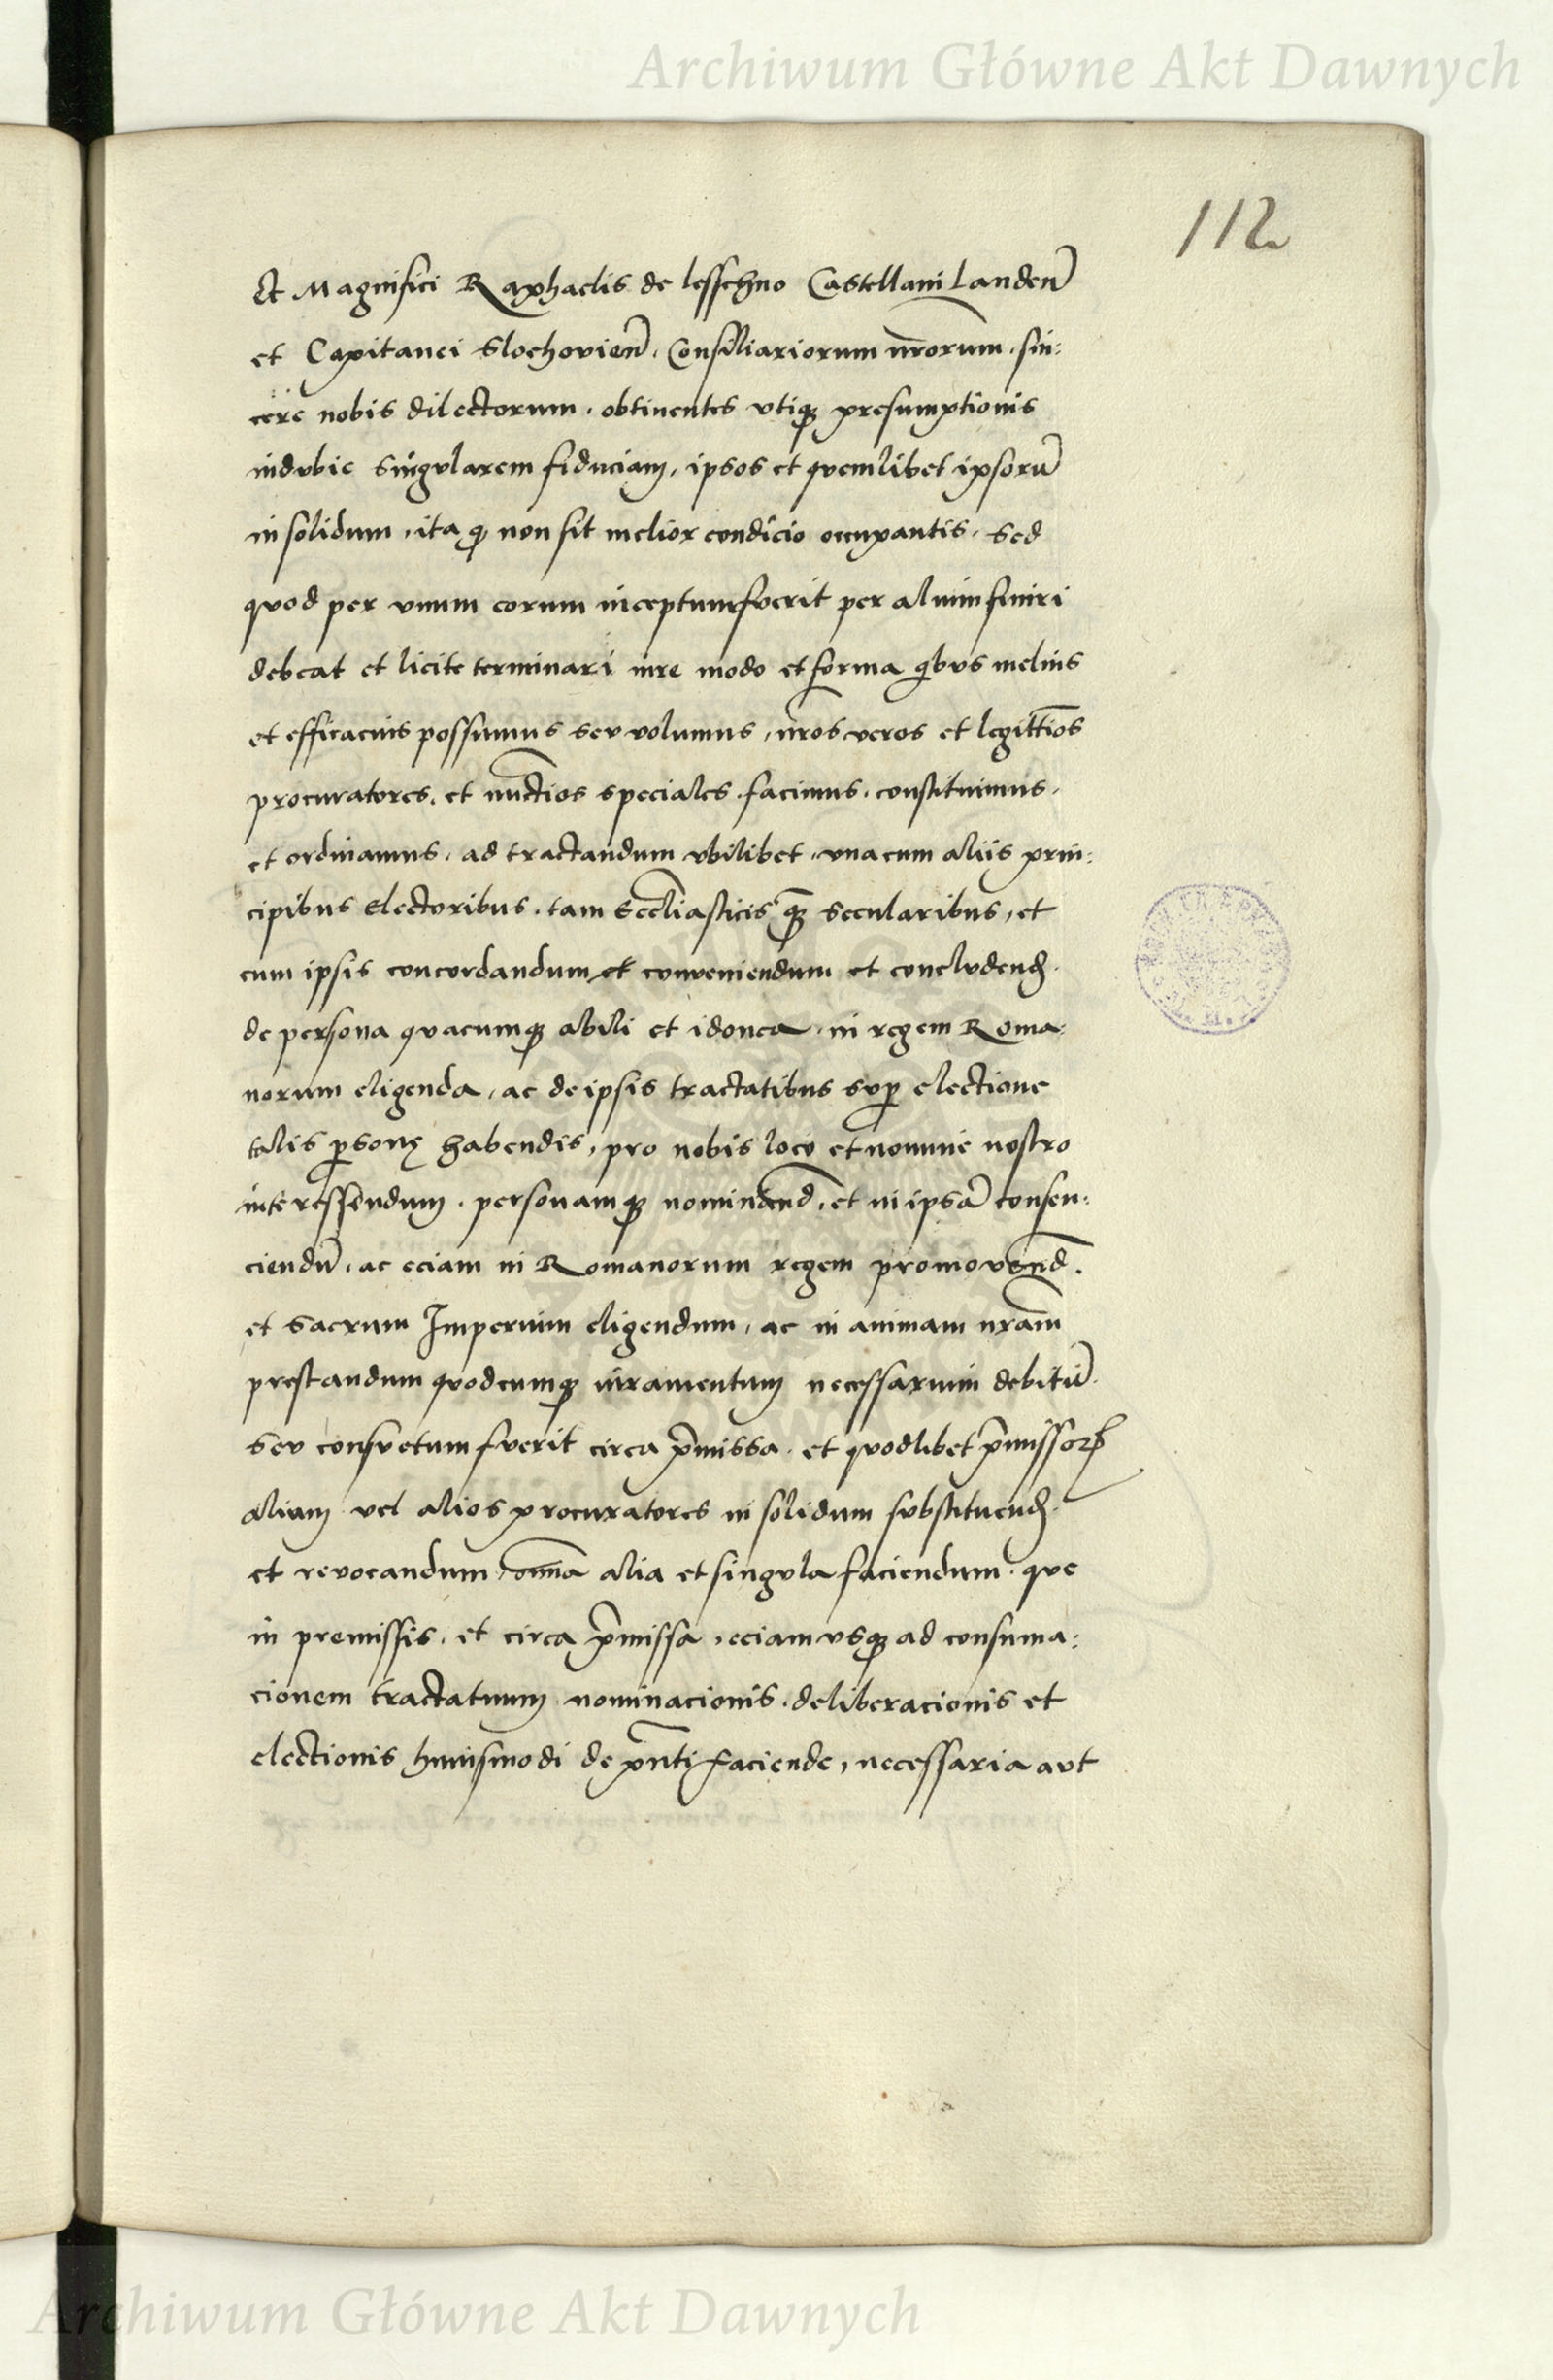 Archiwum Główne Akt Dawnych
112
Et Magnifici Raphaelis de lesschno Castellani Landen̄
et Capitanei Slochovien̄. Consiliariorum nr̄orum. sin:
cere nobis dilectorum. obtinentes vtiqꝫ presumptionis
indvbie singvlarem fiduciam, ipsos et qvemlibet ipsorū
in solidum, ita ꝙ non sit melior condicio occupantis. Sed
qvod per vnum eorum inceptum fverit per alium finiri
debeat et licite terminari iure modo et forma qi̇bvs melius
et efficacius possumus sev volumus, nr̄os veros et legitti̅os
procuratores, et nūctios speciales facimus. constituimus.
et ordinamus. ad tractandum vbilibet, vna cum aliis prin:
cipibus electoribus. tam Eccl̄iasticis qꝫ̄ secularibus, et
cum ipsis concordandum et conveniendum et conclvdend̄.
de persona qvacumqꝫ abili et idonea. in regem Roma:
norum eligenda, ac de ipsis tractatibus svꝑ electione
talis ꝑsonę habendis, pro nobis loco et nomine nostro
interessendum. personamqꝫ nominānd, et in ipsā consen:
ciendū. ac eciam in Romanorum regem promovend̄.
et sacrum Imperium eligendum, ac in animam nrām
prestandum qvodcumqꝫ iuramentum necessarium debitū.
sev consvetum fverit circa p̄missa. et qvodlibet p̄missoꝝ
alium vel alios procuratores in solidum svbstituend̄.
et revocandum, om̄ia alia et singvla faciendum. qve
in premissis. et circa p̄missa, eciam vsqꝫ ad consuma:
cionem tractatuum nominacionis. deliberacionis et
electionis huiusmodi de p̄nti faciende, necessaria avt
Archiwum Główne Akt Dawnych